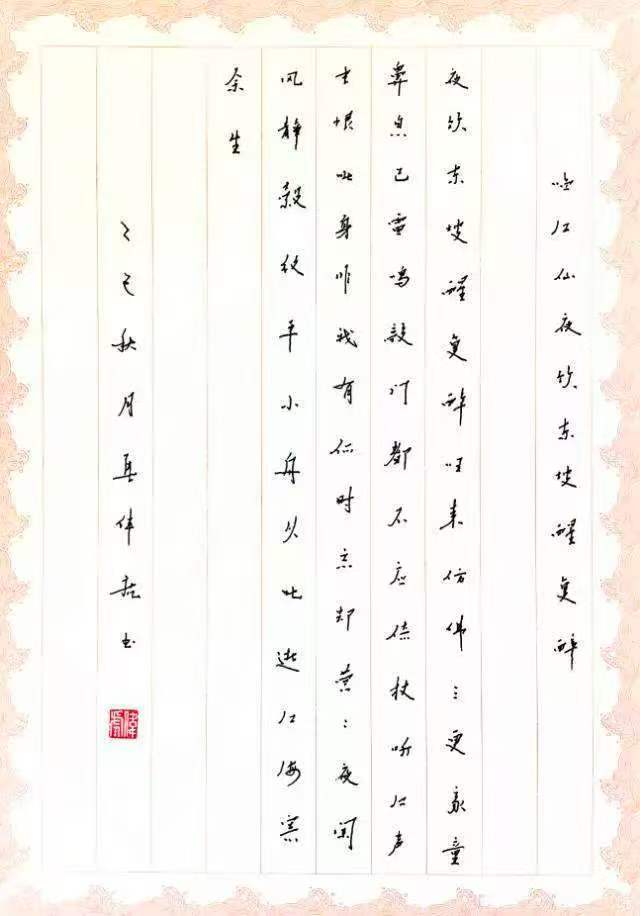 临江仙夜饮东坡醒复醉
夜饮东坡醒复醉归来仿佛三更家童
鼻息已雷鸣敲门都不应倚杖听江声
长恨此身非我有何时忘却营营夜阑
风静縠纹平小舟从此逝江海寄
余生
乙巳秋月伟书